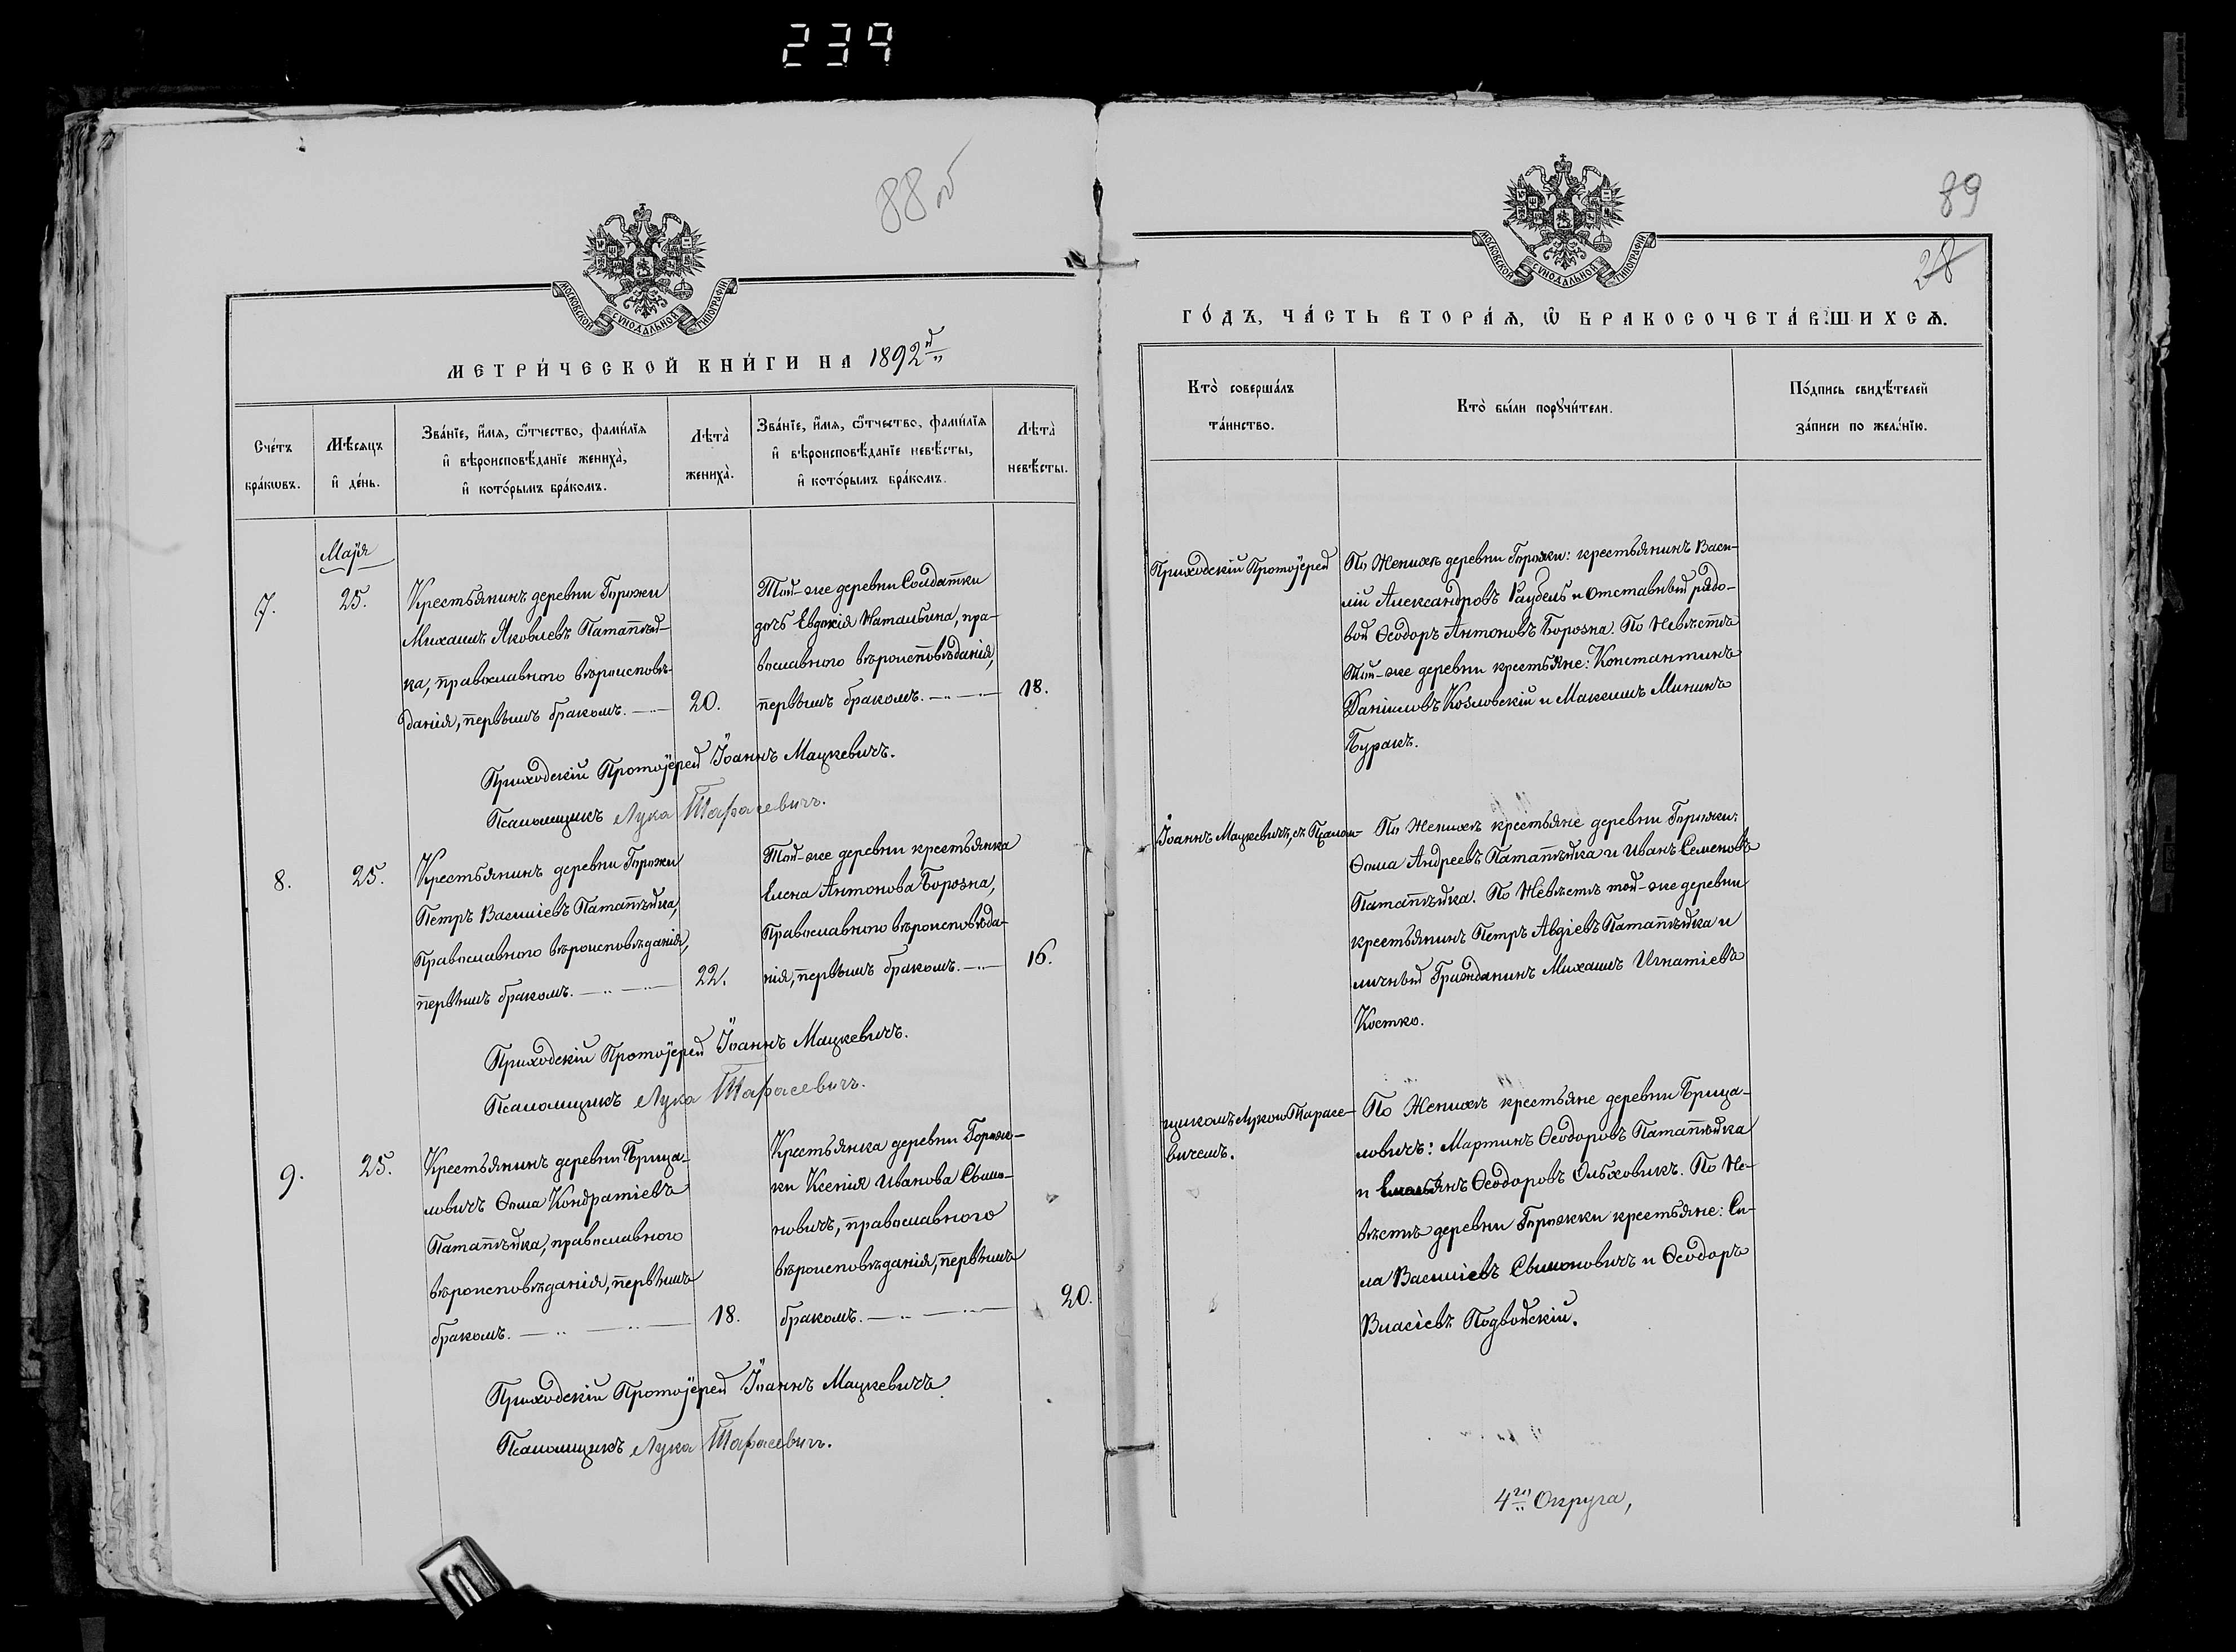 239
88 об
МОСКОВСКОЙ СѴНОДАЛЬНОЙ ТИПОГРАФІИ
МЕТРИ́ЧЕСКОЙ КНИ́ГИ НА 1892й
Сче́тъ бра́кѡвъ.
Мѣ́сѧцъ и҆ де́нь.
Зва́нїе, и҆́мѧ, ѻ҆́тчество, фами́лїѧ
и҆ вѣроисповѣ́данїе жениха̀,
и҆ кото́рымъ бра́комъ.
Лѣта̀ жениха̀.
Зва́нїе, и҆́мѧ, ѻ҆́тчество, фами́лїѧ
и҆ вѣроисповѣ́данїе невѣ́сты,
и҆ кото́рымъ бра́комъ.
Лѣта̀ невѣ́сты.
Маія
7.
25.
Крестьянинъ деревни Горожи
Михаилъ Яковлевъ Патапѣй-
ка, православнаго вѣроисповѣ-
данія, первымъ бракомъ.
20.
Той-же деревни Солдатки
дочь Евдокія Наталь­ина, пра-
вославного вѣроисповѣданія,
первымъ бракомъ.
18.
Приходскій Протоіерей Іоаннъ Мацкевичъ.
Псаломщикъ Лука Тарасевичъ.
8.
25.
Крестьянинъ деревни Горожи
Петръ Василіевъ Патапѣйка,
Православного вѣроисповѣданія,
первымъ бракомъ.
22.
Той-же деревни крестьянка
Елена Антонова Борозна,
Православного вѣроисповѣда-
нія, первымъ бракомъ.
16.
Приходскій Протоіерей Іоаннъ Мацкевичъ.
Псаломщикъ Лука Тарасевичъ.
9.
25.
Крестьянинъ деревни Брица-
ловичъ Ѳома Кондратіевъ
Патапѣйка, православного
вѣроисповѣданія, первымъ
бракомъ.
18.
Крестьянка деревни Горож-
ки Ксенія Иванова Свило-
новичъ, православного
вѣроисповѣданія, первымъ
бракомъ.
20.
Приходскій Протоіерей Іоаннъ Мацкевичъ
Псаломщикъ Лука Тарасевичъ.
89
28
МОСКОВСКОЙ СѴНОДАЛЬНОЙ ТИПОГРАФІИ
ГО́ДЪ, ЧА́СТЬ ВТОРА́Ѧ, Ѡ҆ БРАКОСОЧЕТА́ВШИХСѦ.
Кто̀ соверша́лъ та́инство.
Кто̀ бы́ли порꙋчи́тели.
По́дпись свидѣ́телей
за́писи по жела́нїю.
Приходскій Протоіерей
По Женихѣ деревни Горожи: крестьянинъ Васи-
лій Александровъ Раубель и отставной рядо-
вой Ѳеодоръ Антоновъ Борозна. По Невѣстѣ
Той-же деревни крестьяне: Константинъ
Даніиловъ Козловскій и Максимъ Мининъ
Буракъ.
Іоаннъ Мацкевичъ, съ Псалом-
По Женихѣ крестьяне деревни Горожи:
Ѳома Андреевъ Патапѣйка и Иванъ Семеновъ
Патапѣйка. По Невѣстѣ той-же деревни
крестьянинъ Петръ Авдіевъ Патапѣйка и
личный Гражданинъ Михаилъ Игнатіевъ
Костко.
щикомъ Лукою Тарасе-
вичемъ.
По Женихѣ крестьяне деревни Брица-
ловичъ: Мартинъ Ѳеодоровъ Патапѣйка
и Емельянъ Ѳеодоровъ Ольховикъ. По Не-
вѣстѣ деревни Горожки крестьяне: Си-
ла Василіевъ Свилоновичъ и Ѳеодоръ
Власіевъ Подвойскій.
4го Округа,